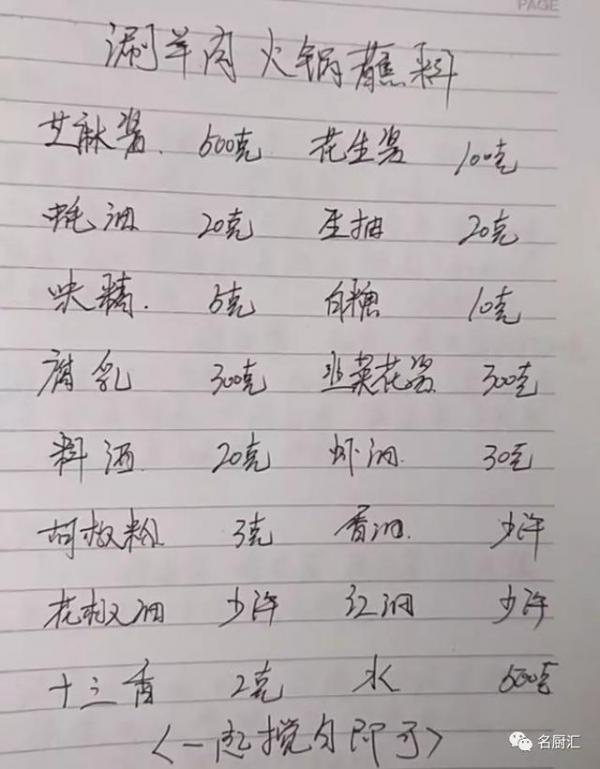 PAGE
涮羊肉火锅蘸料
芝麻酱. 500克 花生酱 100克
蚝油 20克 生抽 20克
味精. 5克 白糖 10克
腐乳 300克 韭菜花酱 300克
料酒 20克 虾油. 30克
胡椒粉 3克 香油. 少许
花椒油 少许 红油 少许
十三香 2克 水 500克
<一起搅匀即可>
名厨汇